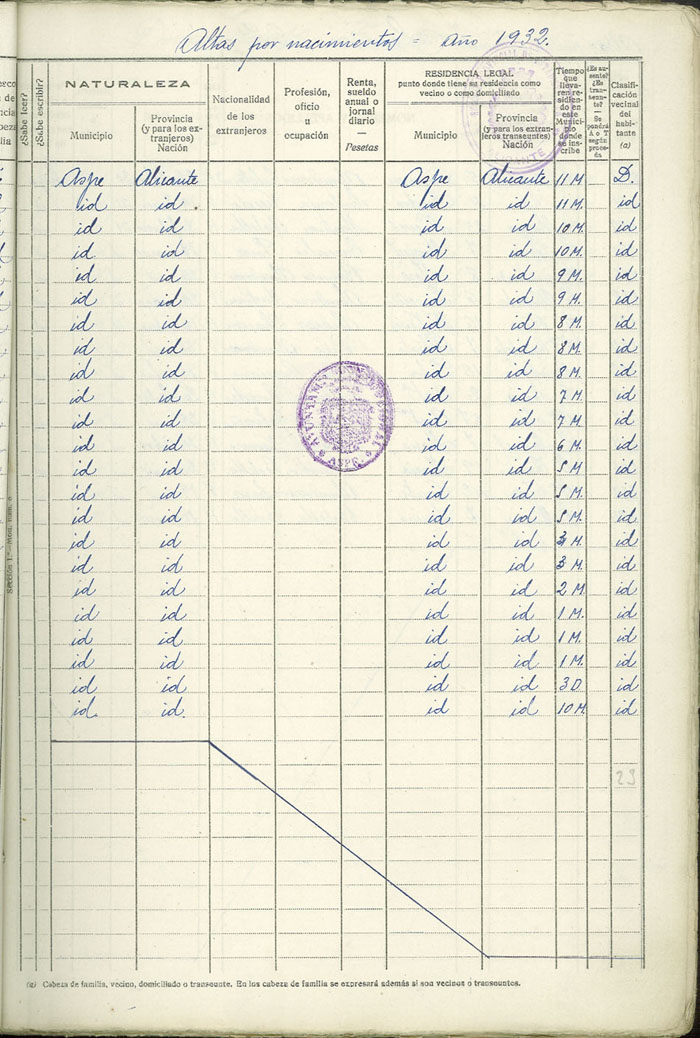 Altas por nacimientos = Año 1932.
¿Sabe leer?
¿Sabe escribir?
NATURALEZA
Municipio
Provincia
(y para los ex-
tranjeros)
Nación
Nacionalidad
de los
extranjeros
Profesión,
oficio
u
ocupación
Renta,
sueldo
anual o
jornal
diario
—
Pesetas
RESIDENCIA LEGAL
punto donde tiene su residencia como
vecino o como domiciliado
Municipio
Provincia
(y para los extran-
jeros transeuntes)
Nación
Tiempo
que
lleva-
ren resi-
diendo
en
este
Munici-
pio
donde
se ins-
cribe
¿Es au-
sente?
¿Es
tran-
seun-
te?
—
Se
pondrá
A o T
según
proce-
da
Clasifi-
cación
vecinal
del
habi-
tante
(a)
Aspe Alicante Aspe Alicante 11 M D.
id id . id id 11 M. id
id id id id 10 M. id
id id id id 10 M. id
id id id id 9 M. id
id id id id 9 M. id
id id id id 8 M. id
id id id id 8 M. id
id id id id 8 M. id
id id id id 7 M. id
id id id id 7 M. id
id id id id 6 M. id
id id id id 5 M id
id id id id 5 M. id
id id id id 5 M. id
id id id id 3 M. id
id id id id 3 M. id
id id id id 2 M. id
id id id id 1 M. id
id id id id 1 M. id
id id id id 1 M. id
id id id id 3 D. id
id. id. id id 10 M. id
ASPE
23
(a) Cabeza de familia, vecino, domiciliado o transeunte. En los cabeza de familia se expresará además si son vecinos o transeuntes.